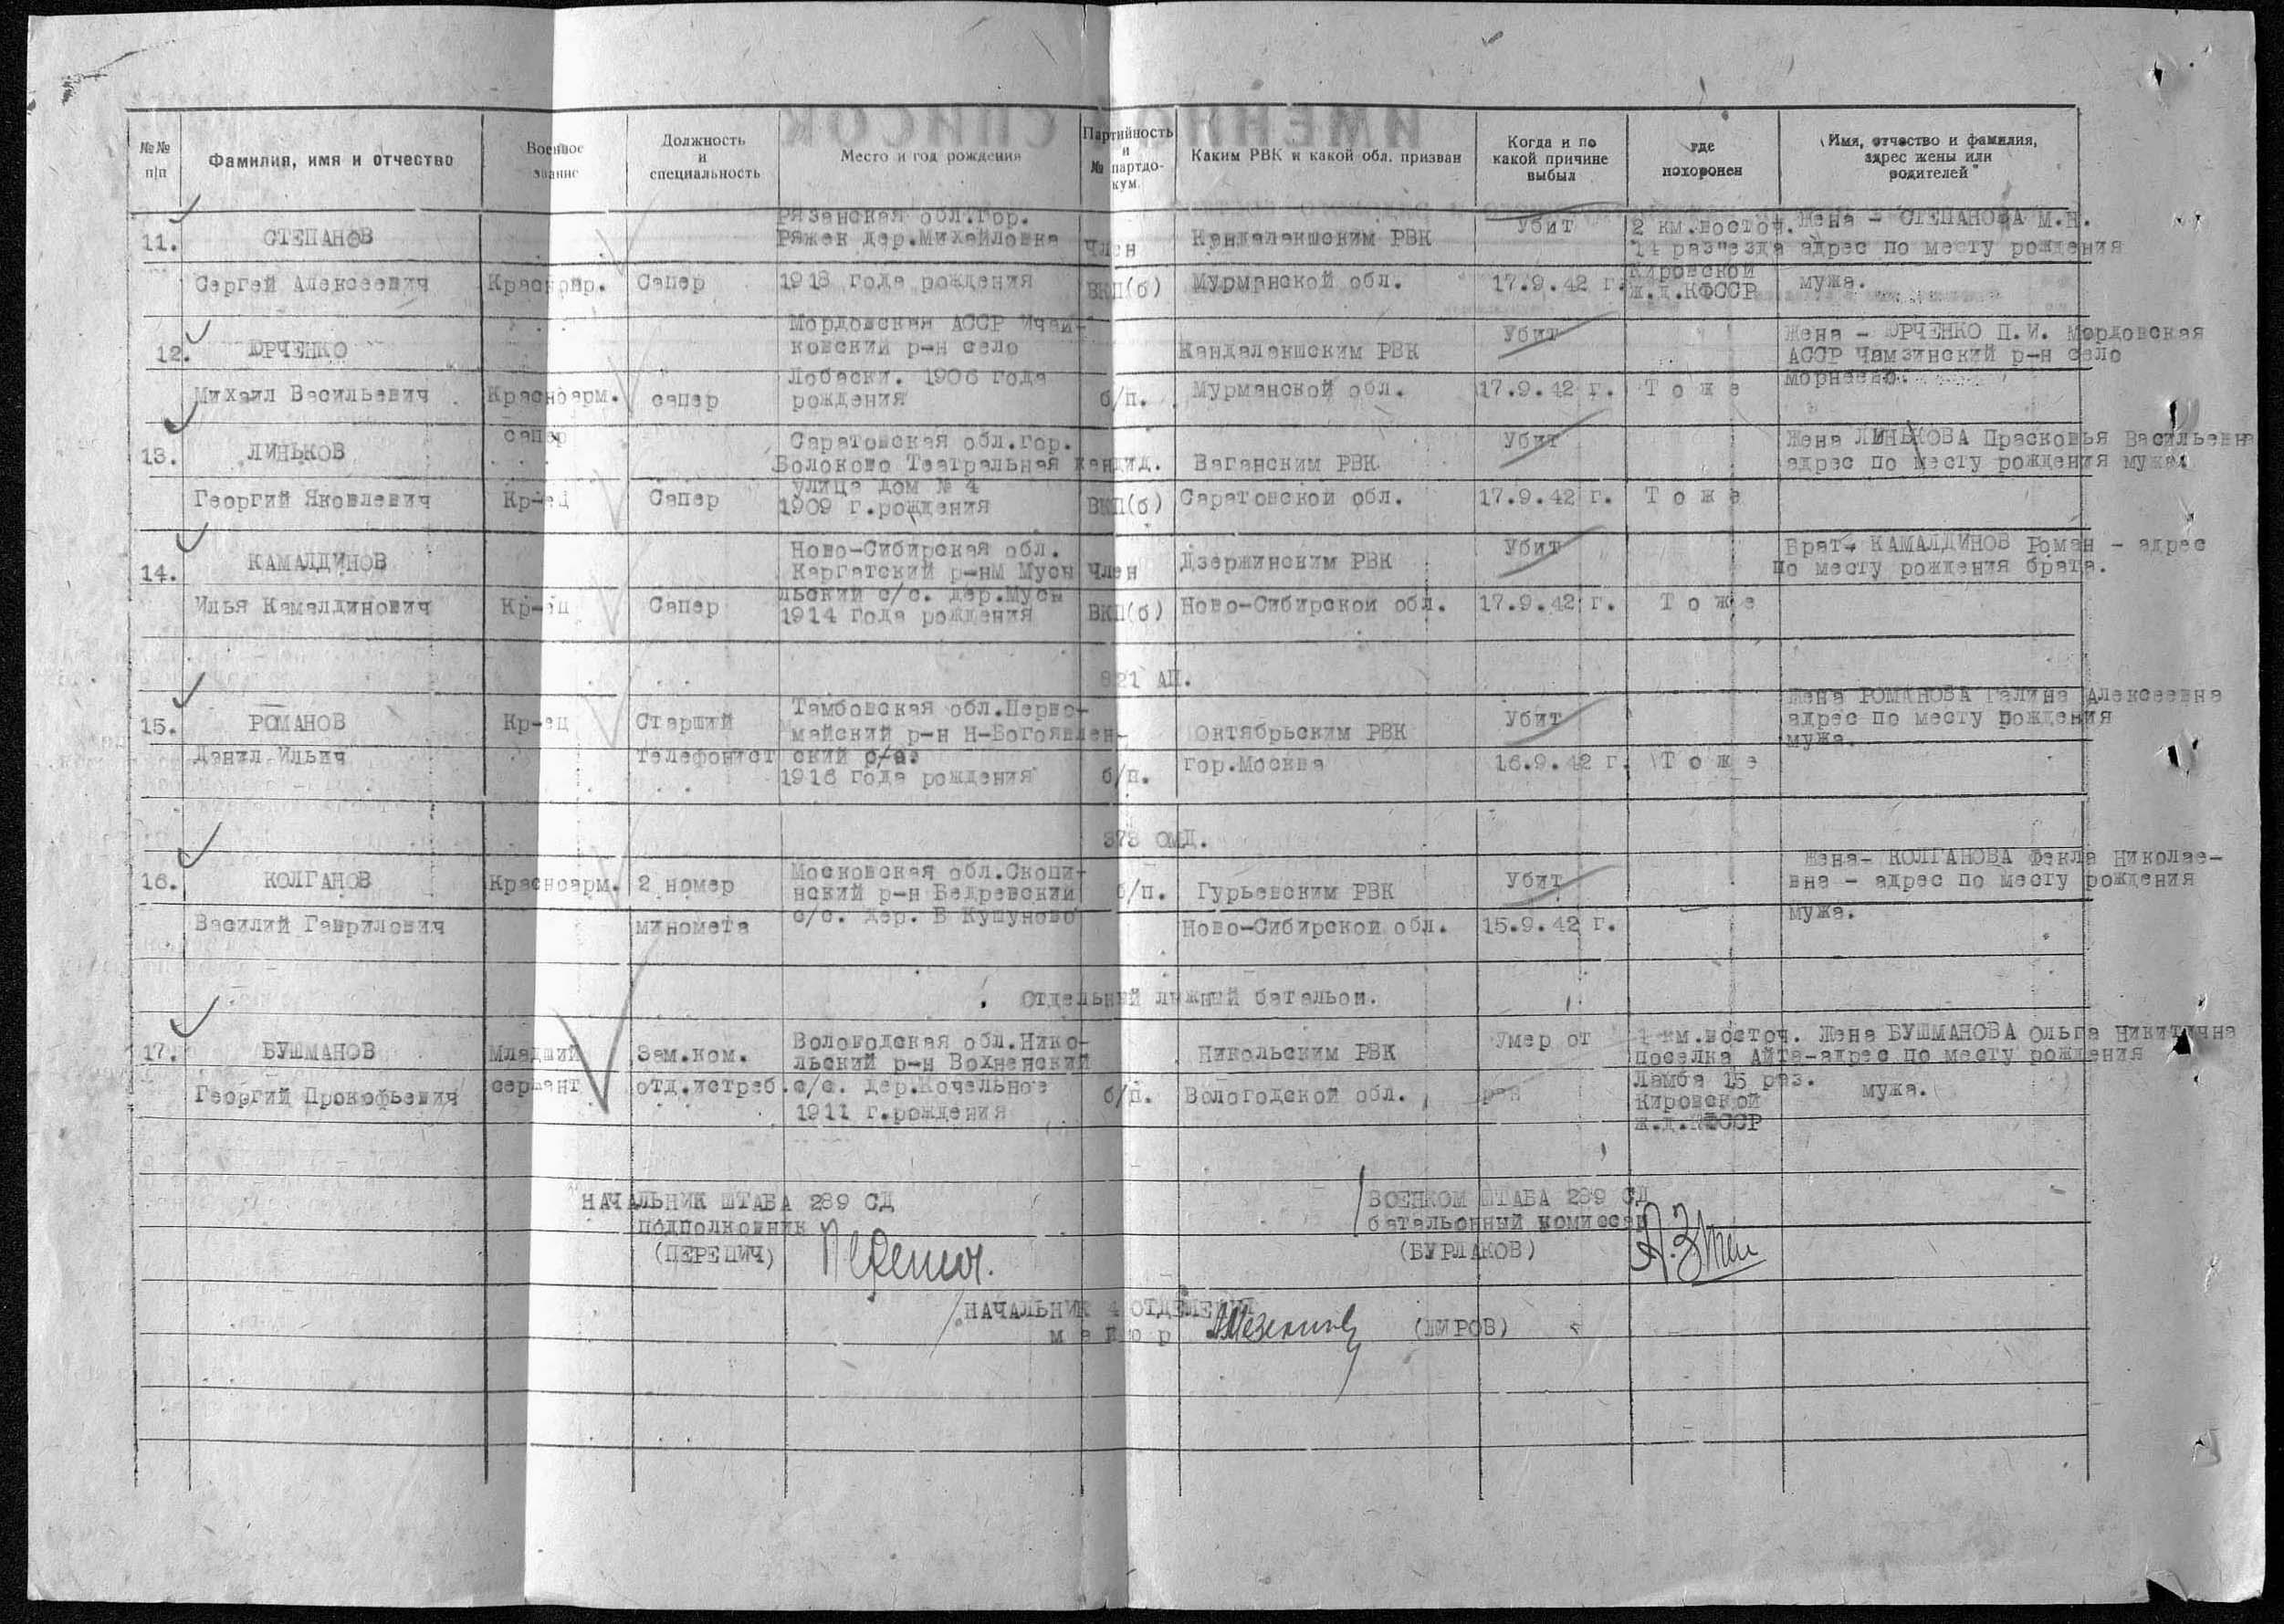 ИМЕННОЙ СПИСОК
№№ п/п
Фамилия, имя и отчество
Военное звание
Должность и специальность
Место и год рождения
Партийность и № партдокум.
Каким РВК и какой обл. призван
Когда и по какой причине выбыл
где похоронен
Имя, отчество и фамилия, адрес жены или родителей
11.
СТЕПАНОВ
Сергей Алексеевич
Сапер
Рязанская обл.гор.
Ряжек дер.Михайловка
1918 года рождения
Член
ВКП(б)
Кандалакшским РВК
Мурманской обл.
Убит
17.9.42 г.
2 км.восточ.
14 раз"езда
Кировской
ж.д.КФССР
Жена - СТЕПАНОВА М.Н.
адрес по месту рождения
мужа.
12.
ЮРЧЕНКО
Михаил Васильевич
Красноарм.
сапер
Мордовская АССР Ичал-
ковский р-н село
Лобаски. 1906 года
рождения
б/п.
Кандалакшским РВК
Мурманской обл.
Убит
17.9.42 г.
Т о ж е
Жена - ЮРЧЕНКО П.И. Мордовская
АССР Чамзинский р-н село
13.
ЛИНЬКОВ
Георгий Яковлевич
сапер
Кр-ец
Сапер
Саратовская обл.гор.
Волоково Театральная
улица дом № 4
1909 г.рождения
кандид.
ВКП(б)
Ваганским РВК
Саратовской обл.
Убит
17.9.42 г.
Т о ж е
Жена ЛИНЬКОВА Прасковья Васильевна
адрес по месту рождения мужа.
14.
КАМАЛДИНОВ
Илья Камалдинович
Кр-ец
Сапер
Ново-Сибирская обл.
Каргатский р-нМ Мусы
льский с/с. дер.Мусы
1914 года рождения
Член
ВКП(б)
Дзержинским РВК
Ново-Сибирской обл.
Убит
17.9.42 г.
Т о ж е
Брат- КАМАЛДИНОВ Роман - адрес
по месту рождения брата.
821 АП.
15.
РОМАНОВ
Данил Ильич
Кр-ец
Старший
телефонист
Тамбовская обл.Перво-
майский р-н Н-Богоявлен-
ский с/с.
1916 года рождения
б/п.
Октябрьским РВК
гор.Москва
Убит
16.9.42 г.
Т о ж е
Жена РОМАНОВА Галина Алексеевна
адрес по месту рождения
мужа.
373 ОМД.
16.
КОЛГАНОВ
Василий Гаврилович
Красноарм.
2 номер
миномета
Московская обл.Скопи-
нский р-н Бедревский
с/с. дер. Б Кушуново
б/п.
Гурьевским РВК
Ново-Сибирской обл.
Убит
15.9.42 г.
Жена- КОЛГАНОВА Фекла Николае-
вна - адрес по месту рождения
мужа.
Отдельный лыжный батальон.
17.
БУШМАНОВ
Георгий Прокофьевич
Младший
сержант
Зам.ком.
отд.истреб.
Вологодская обл.Нико-
льский р-н Вохненский
с/с. дер.Кочельное
1911 г.рождения
б/п.
Никольским РВК
Вологодской обл.
Умер от
ран
1 км.восточ.
поселка Айта-
Ламба 15 раз.
Кировской
ж.д.КФССР
Жена БУШМАНОВА Ольга Никитична
адрес по месту рождения
мужа.
НАЧАЛЬНИК ШТАБА 289 СД
подполковник
(ПЕРЕПИЧ)
ВОЕНКОМ ШТАБА 289 СД
батальонный комиссар
(БУРЛАКОВ)
НАЧАЛЬНИК 4 ОТДЕЛЕНИЯ
м а й о р